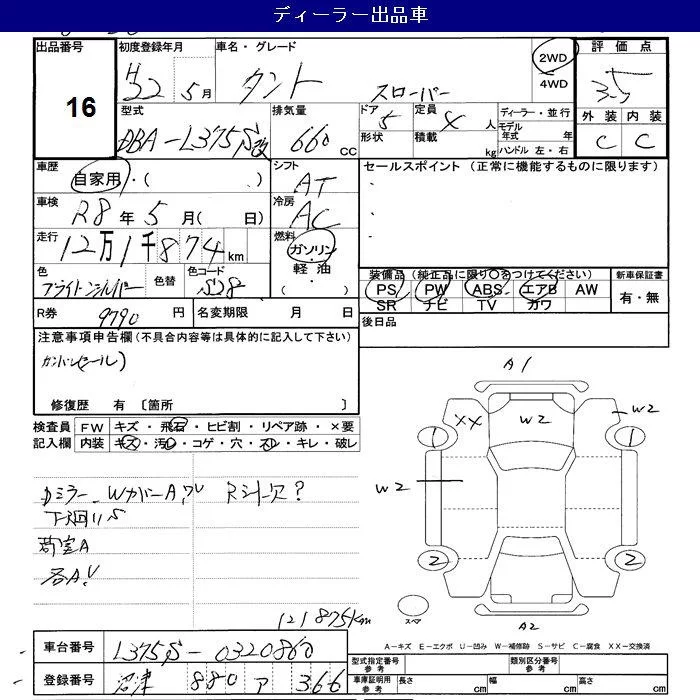 ディーラー出品車
出品番号 初度登録年月 車名・グレード 2WD 評価点
H22 5月 タント スローパー 4WD 3.5
16
型式 排気量 ドア 定員 ディーラー・並行 外装 内装
DBA-L375S改 660 cc 5 4人 モデル年式 年 C C
形状 積載 kg ハンドル 左・右
車歴 シフト セールスポイント (正常に機能するものに限ります)
自家用・( ) AT
車検 冷房
R8年5月( 日) AC
走行 燃料
12万1千874km ガソリン・軽油・( )
色 色替 色コード 装備品(純正品に限り○をつけてください) 新車保証書
ブライトシルバー S28 PS PW ABS エアB AW 有・無
SR ナビ TV カワ
R券 9790円 名変期限 月 日 後日品
注意事項申告欄(不具合内容等は具体的に記入して下さい)
修復歴 有 〔箇所 〕
検査員 FW キズ・飛石・ヒビ割・リペア跡・×要
記入欄 内装 キズ・汚レ・コゲ・穴・スレ・キレ・破レ
A1
XX W2 W2
1 1
W2
2 2
スペア A2
Dミラー、WカバーA,ワレ Rシート欠?
下廻りS
荷室A
各A,U
121875km
A-キズ E-エクボ U-凹み W-補修跡 S-サビ C-腐食 XX-交換済
車台番号 L375S-0320860 型式指定番号 参考 類別区分番号 参考
登録番号 沼津 880 ア 366 車庫証明用 参考 長さ cm 幅 cm 高さ cm